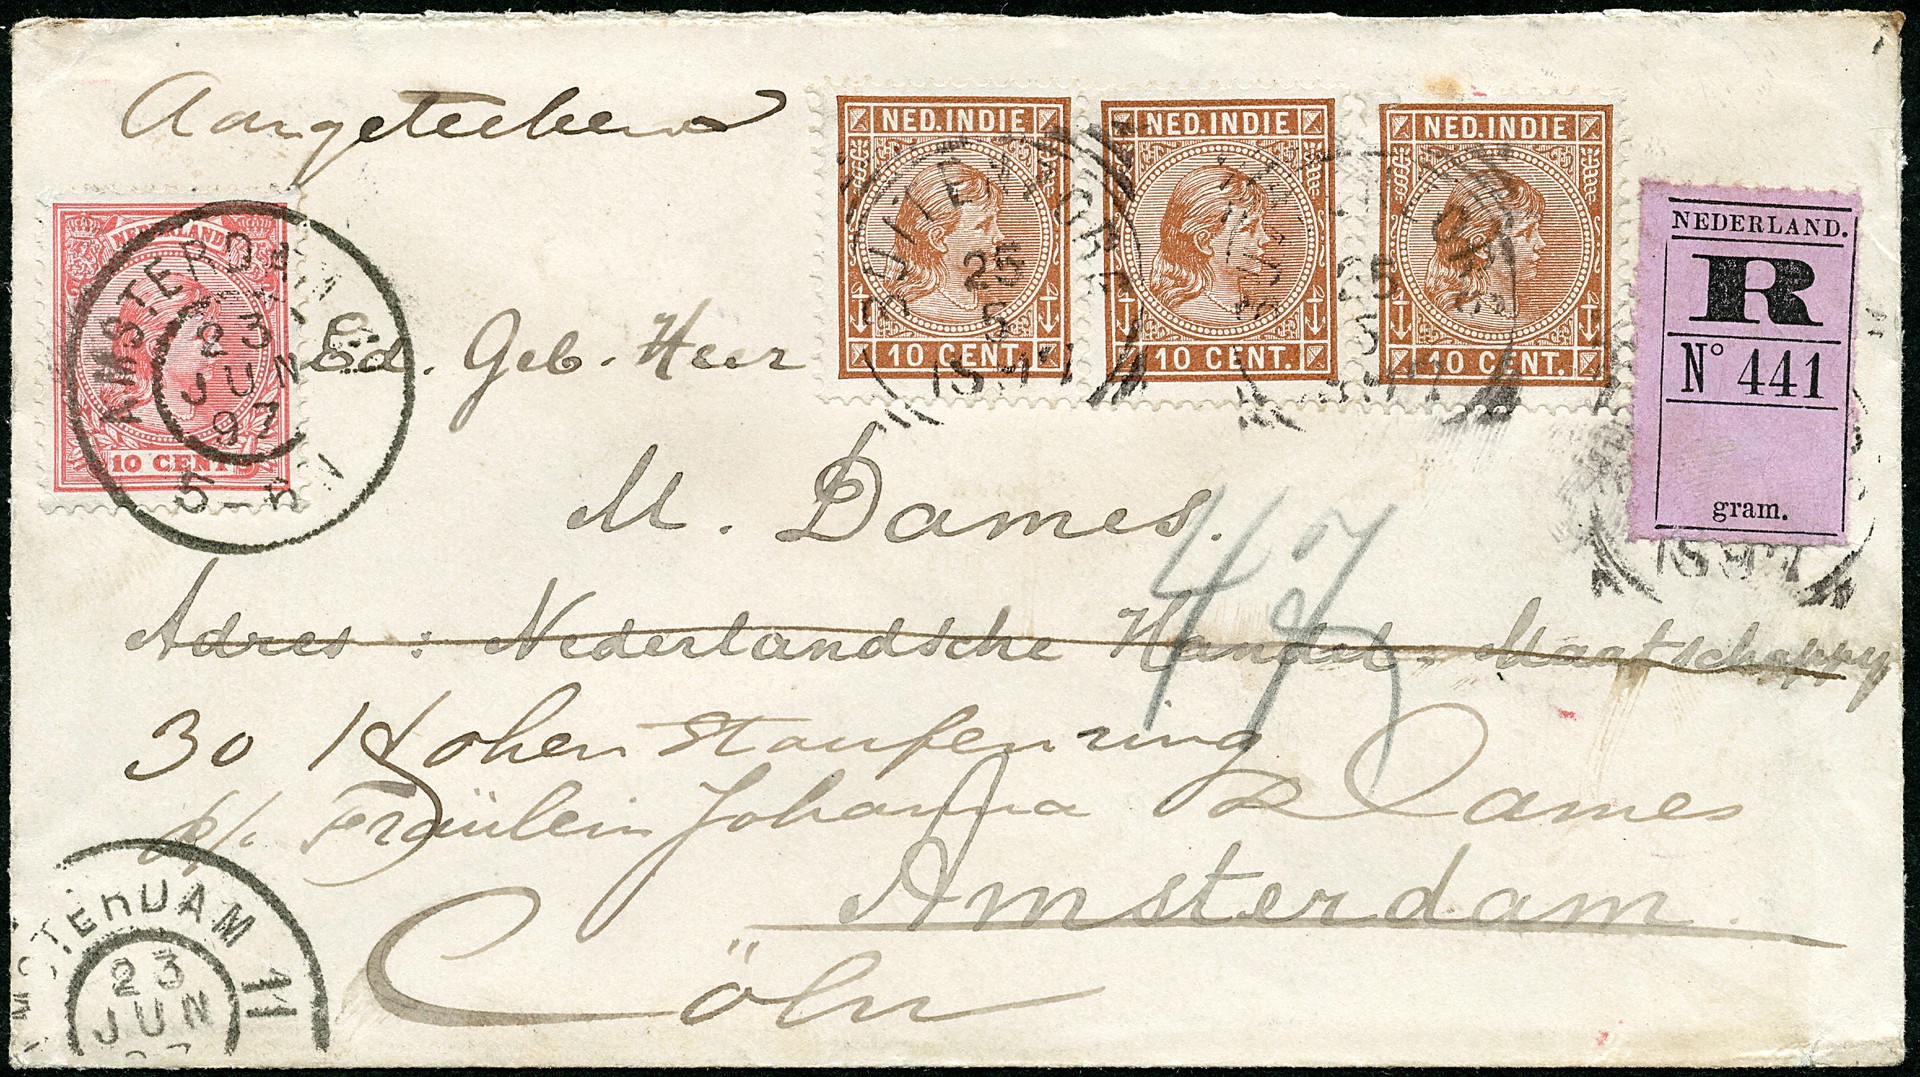 Aangeteekend
NED.INDIE
10 CENT.
NED.INDIE
10 CENT.
NED.INDIE
10 CENT.
BUITENZORG
25
5
1897
25
5
NEDERLAND.
R
N° 441
gram.
1897
NEDERLAND
10 CENT
AMSTERDAM
23
JUN
97
5-6N
Ed. Geb. Heer
M. Dames.
47
Adres: Nederlandsche Handel-Maatschappy
30 Hohenstaufenring
p/a. Fräulein Johanna Dames
Amsterdam.
Cöln
AMSTERDAM
23
JUN
11